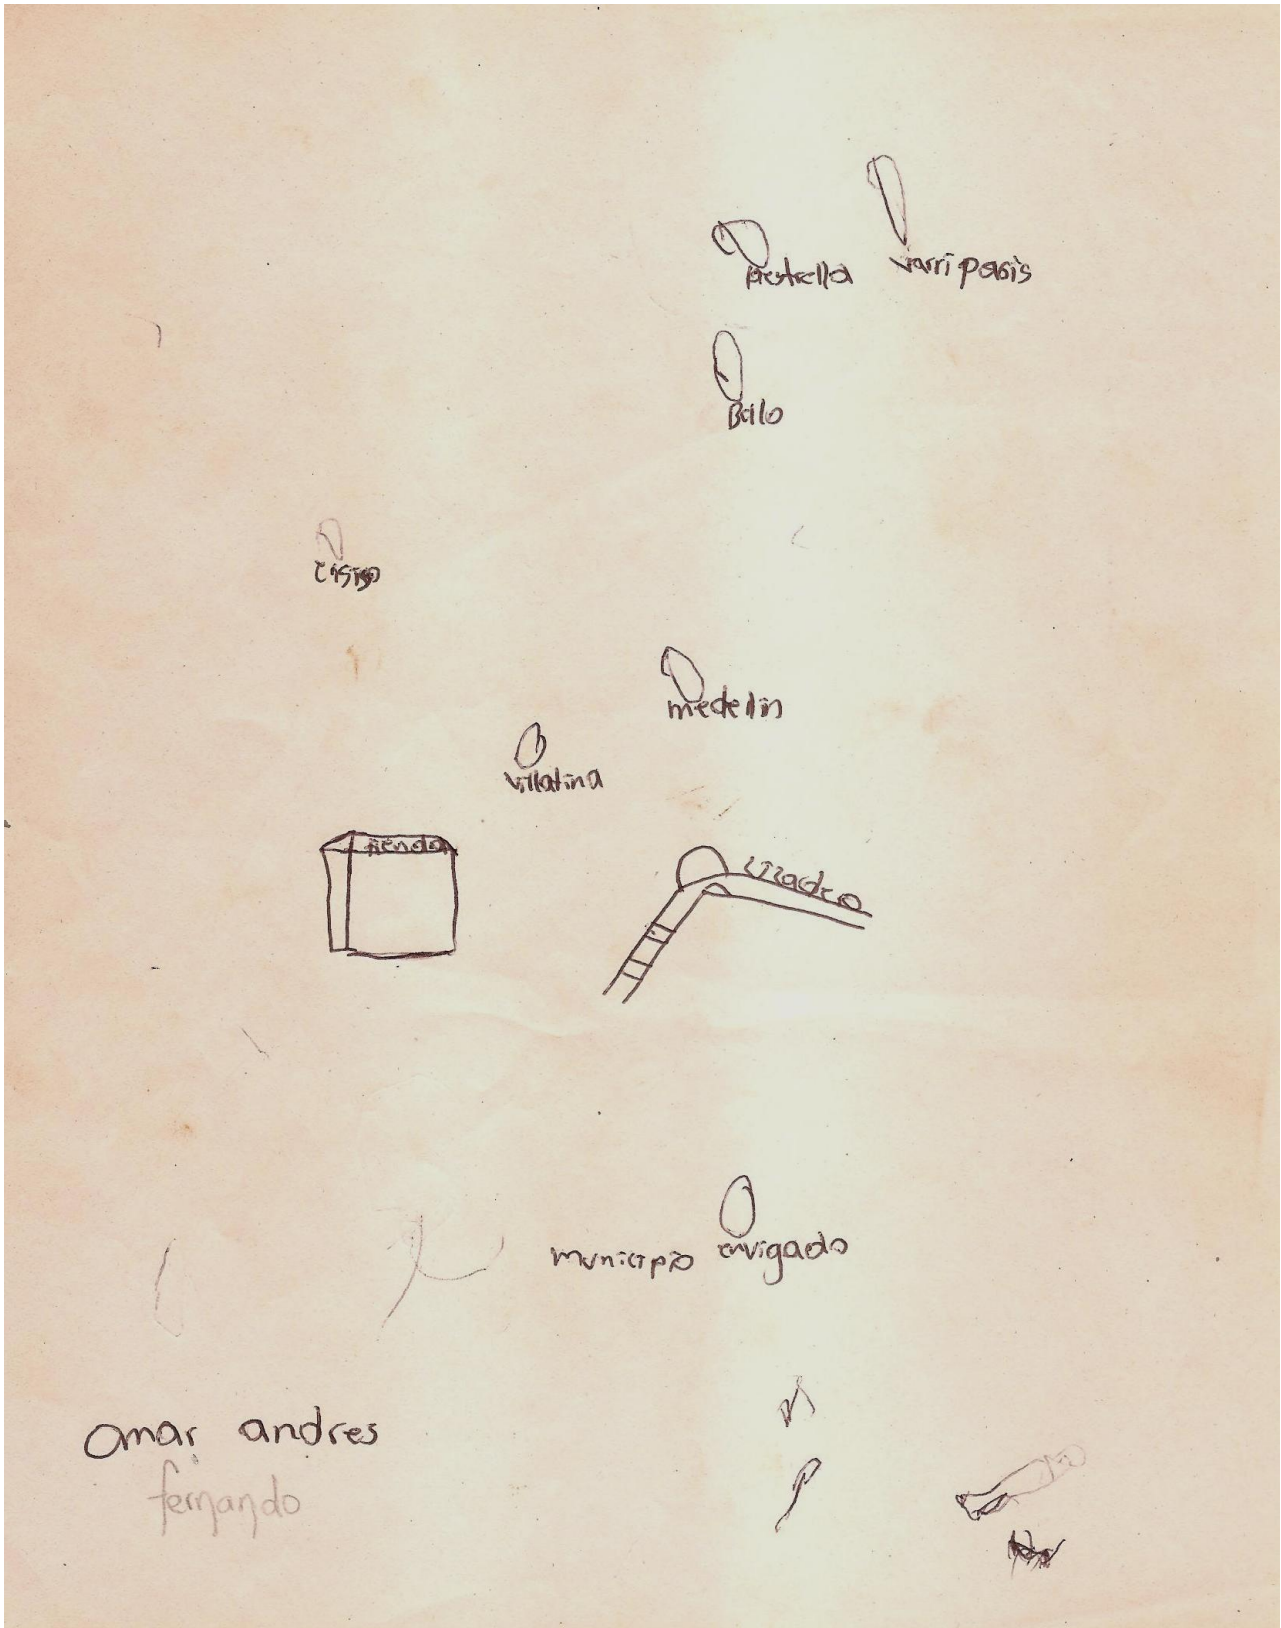 laestrella
varri paris
Bello
medellin
villatina
tienda
lizadero
municipio envigado
omar andres
fernando